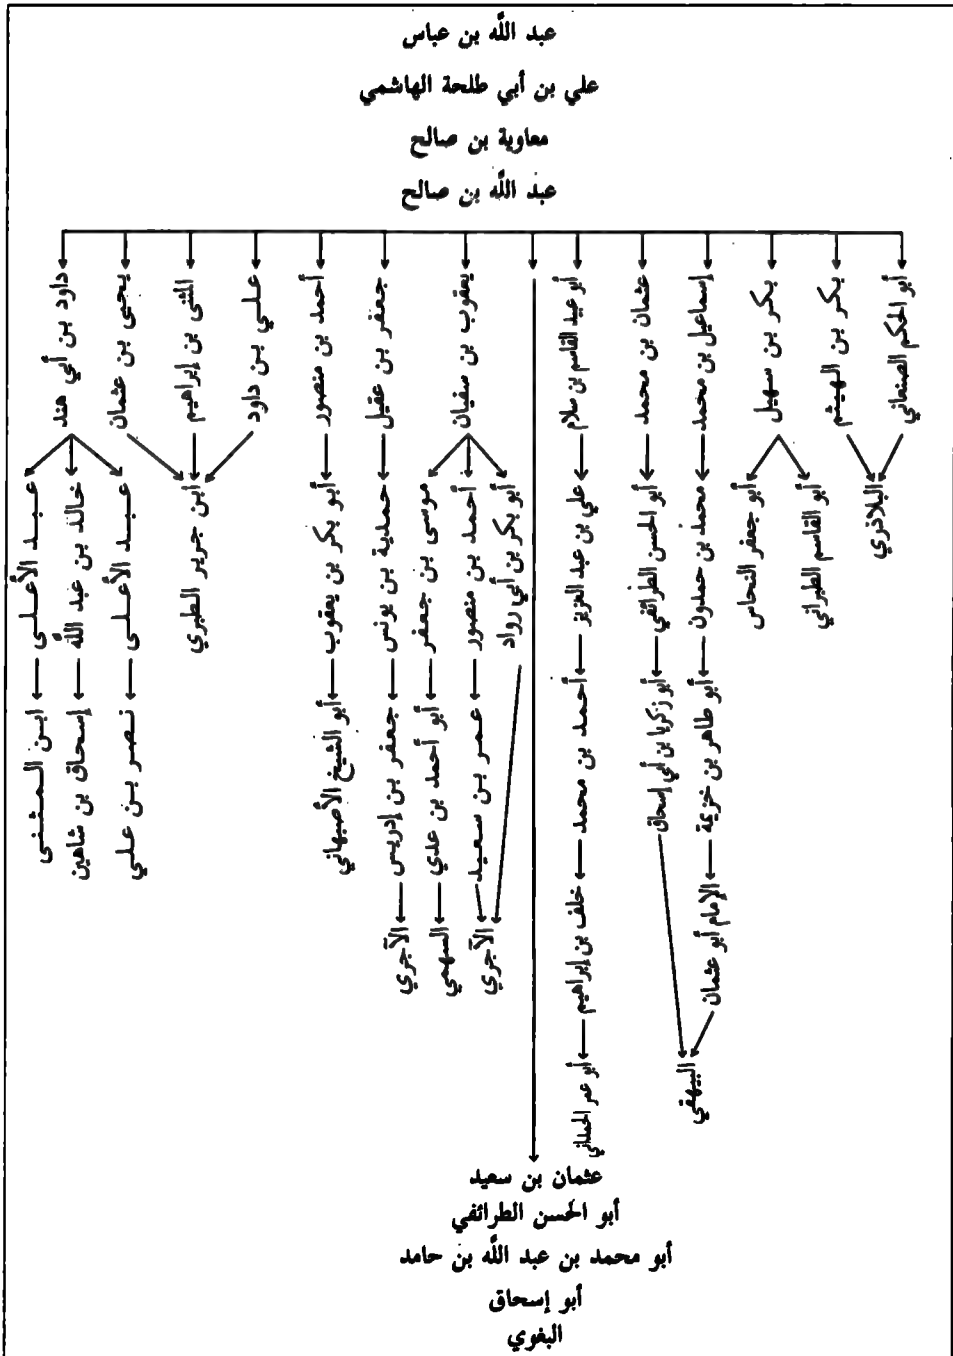 عبد اللَّه بن عباس
علي بن أبي طلحة الهاشمي
معاوية بن صالح
عبد اللَّه بن صالح
أبو الحكم الصنعاني
بكر بن الهيثم
البلاذري
بكر بن سهيل
أبو القاسم الطبراني
أبو جعفر النحاس
إسماعيل بن محمد
محمد بن حمدون
أبو طاهر بن خزيمة
الإمام أبو عثمان
عثمان بن محمد
أبو الحسن الطرائفي
أبو زكريا بن أبي إسحاق
البيهقي
أبو عبيد القاسم بن سلام
علي بن عبد العزيز
أحمد بن محمد
خلف بن إبراهيم
أبو عمر
يعقوب بن سفيان
أبو بكر بن أبي رواد
أحمد بن منصور
عمر بن سعيد
الآجري
موسى بن جعفر
أبو أحمد بن عدي
السهمي
جعفر بن عقيل
حمدية بن يونس
جعفر بن إدريس
الآجري
أحمد بن منصور
أبو بكر بن يعقوب
أبو الشيخ الأصبهاني
علي بن داود
المثنى بن إبراهيم
يحيى بن عثمان
ابن جرير الطبري
داود بن أبي هند
عبد الأعلى
نصر بن علي
خالد بن عبد اللَّه
إسحاق بن شاهين
عبد الأعلى
ابن المثنى
عثمان بن سعيد
أبو الحسن الطرائفي
أبو محمد بن عبد اللَّه بن حامد
أبو إسحاق
البغوي